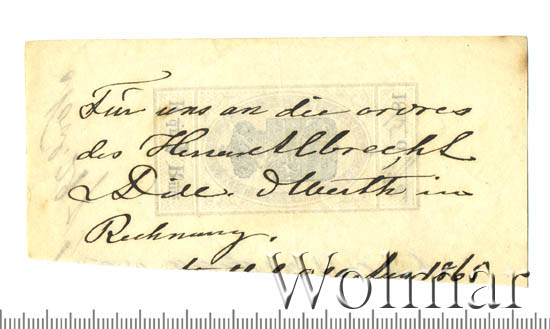 Für uns an die ordres
des Herren Albrecht
Dill. Werth in
Rechnung.
1865
Wolmar